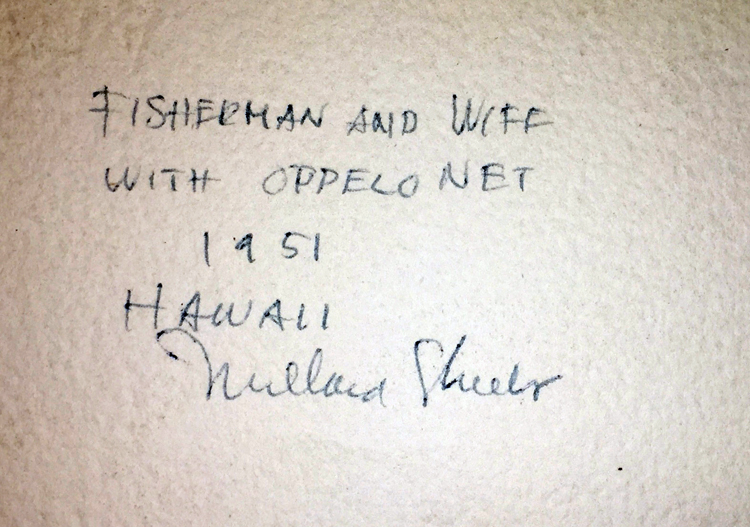 FISHERMAN AND WIFE
WITH OPPELO NET
1951
HAWAII
Millard Sheets